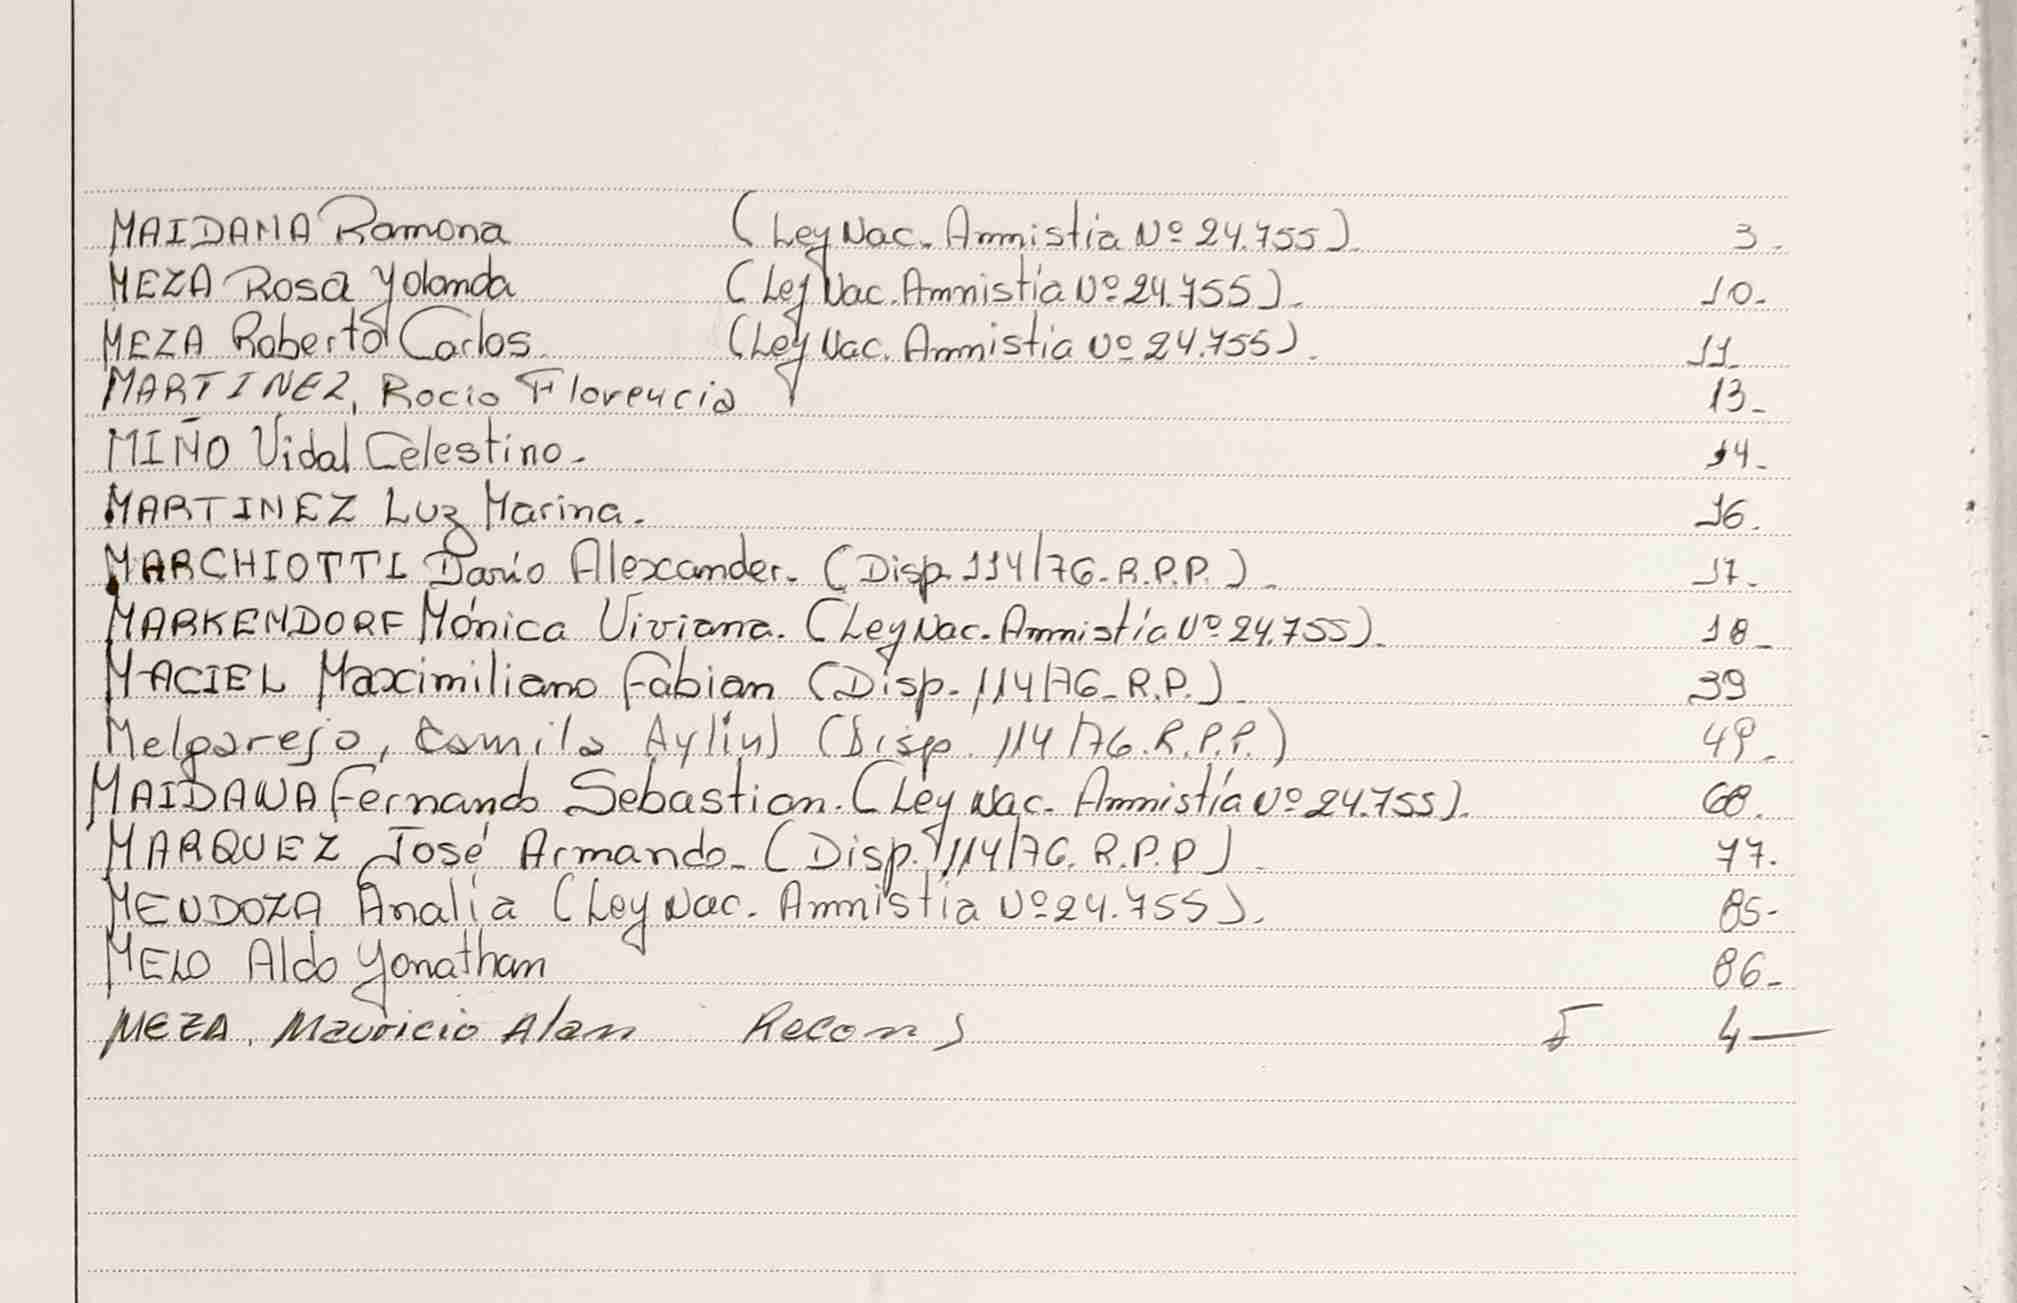 MAIDANA Ramona (Ley Nac. Amnistia Nº 24.755). 3.
MEZA Rosa Yolanda (Ley Nac. Amnistía Nº 24.755). 10.
MEZA Roberto Carlos. (Ley Nac. Amnistia Nº 24.755). 11.
MARTINEZ, Rocio Florencia 13.
MIÑO Vidal Celestino. 14.
MARTINEZ Luz Marina. 16.
MARCHIOTTI Darío Alexcander. (Disp. 114/76. R.P.P.). 17.
MARKENDORF Mónica Viviana. (Ley Nac. Amnistía Nº 24.755). 18
MACIEL Maximiliano Fabian (Disp. 114/76. R.P.) 39
Melgarejo, Camila Aylin (Disp. 114/76. R.P.P.) 49.
MAIDANA Fernando Sebastian. (Ley Nac. Amnistía Nº 24.755). 68.
MARQUEZ José Armando. (Disp. 114/76. R.P.P). 77.
MENDOZA Analía (Ley Nac. Amnistia Nº 24.755). 85-
MELO Aldo Yonathan 86-
MEZA, Mauricio Alan Recon 4—